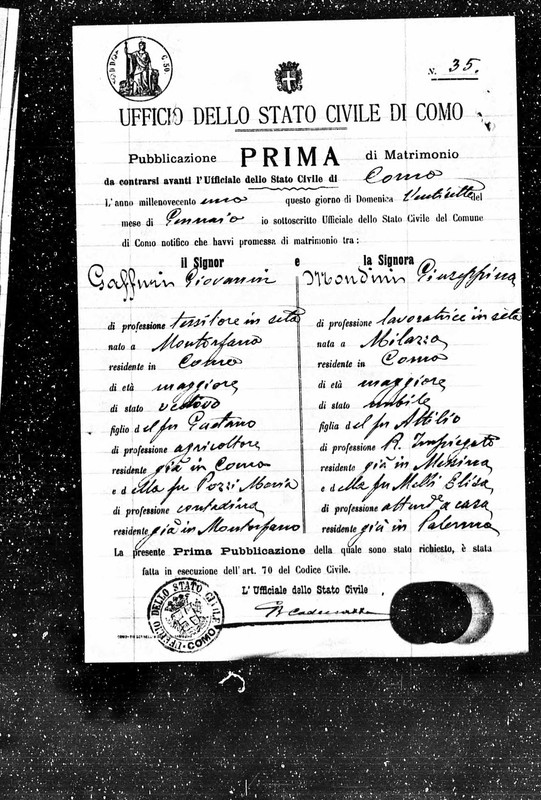 C. 50
N. 35.
UFFICIO DELLO STATO CIVILE DI COMO
Pubblicazione PRIMA di Matrimonio
da contrarsi avanti l'Ufficiale dello Stato Civile di Como
L'anno millenovecento uno questo giorno di Domenica Ventisette del
mese di Gennaio io sottoscritto Ufficiale dello Stato Civile del Comune
di Como notifico che havvi promessa di matrimonio tra:
il Signor e la Signora
Gaffuri Giovanni Mondini Giuseppina
di professione tessitore in seta
nato a Montorfano
residente in Como
di età maggiore
di stato vedovo
figlio del fu Gaetano
di professione agricoltore
residente già in Como
e della fu Pozzi Maria
di professione contadina
residente già in Montorfano
di professione lavoratrice in seta
nata a Milazzo
residente in Como
di età maggiore
di stato nubile
figlia del fu Attilio
di professione R. Impiegato
residente già in Messina
e della fu Melli Elisa
di professione attend. a casa
residente già in Palermo
La presente Prima Pubblicazione della quale sono stato richiesto, è stata
fatta in esecuzione dell'art. 70 del Codice Civile.
L' Ufficiale dello Stato Civile
UFFIZIO DELLO STATO CIVILE COMO